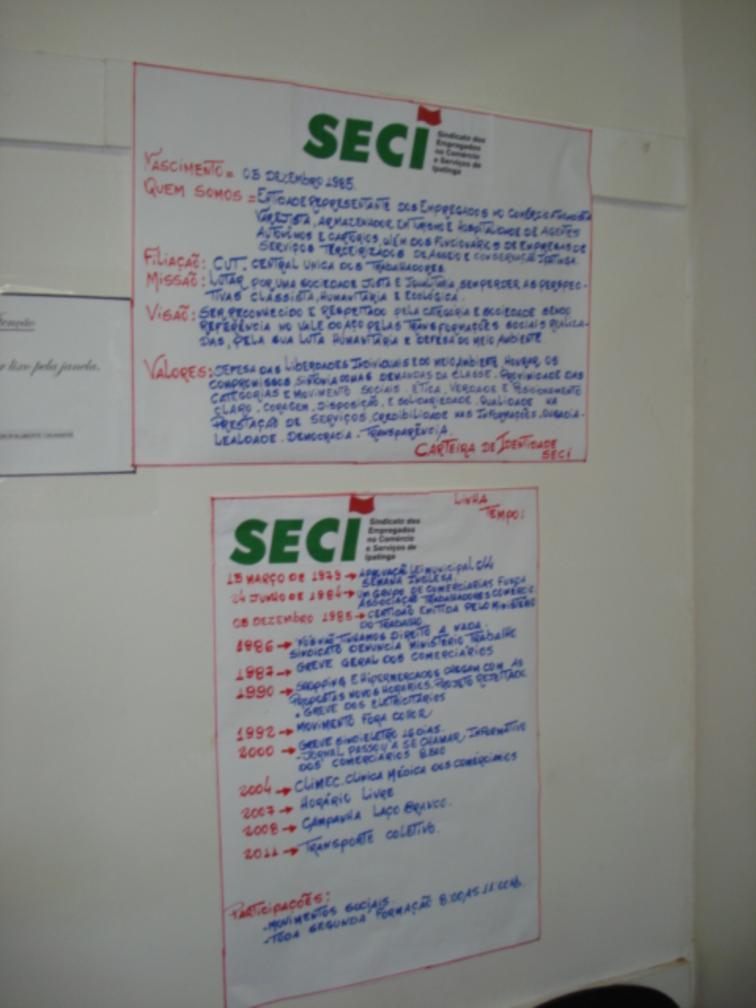 SECI
Sindicato dos
Empregados
no Comércio
e Serviços de
Ipatinga
NASCIMENTO = 03 DEZEMBRO 1985.
QUEM SOMOS = ENTIDADE REPRESENTANTE DOS EMPREGADOS NO COMÉRCIO
VAREJISTA, ARMAZENADOR EM TURISMO E HOSPITALIDADE DE AGENTES
AUTÔNOMOS E CARTÓRIOS, ALÉM DOS FUNCIONÁRIOS DE EMPRESAS DE
SERVIÇOS TERCEIRIZADOS DE ASSEIO E CONSERVAÇÃO IPATINGA.
FILIAÇAÕ: CUT. CENTRAL UNICA DOS TRABALHADORES.
MISSAÕ: LUTAR POR UMA SOCIEDADE JUSTA E IGUALITARIA, SEM PERDER AS PERSPEC-
TIVAS CLASSISTA, HUMANITÁRIA E ECOLÓGICA.
VISAÕ: SER RECONHECIDO E RESPEITADO PELA CATEGORIA E SOCIEDADE SENDO
REFERÊNCIA NO VALE DO AÇO PELAS TRANSFORMAÇÕES SOCIAIS REALIZA-
DAS, PELA SUA LUTA HUMANITÁRIA E DEFESA DO MEIO AMBIENTE.
VALORES: DEFESA DAS LIBERDADES INDIVIDUAIS E DO MEIO AMBIENTE. HONRAR OS
COMPROMISSOS, SINTONIA COM AS DEMANDAS DA CLASSE. PROXIMIDADE DAS
CATEGORIAS E MOVIMENTO SOCIAIS. ETICA, VERDADE E POSICIONAMENTO
CLARO. CORAGEM, DISPOSIÇÃO, E SOLIDARIEDADE. QUALIDADE NA
PRESTAÇÃO DE SERVIÇOS, CREDIBILIDADE NAS INFORMAÇÕES.
LEALDADE. DEMOCRACIA - TRANSPARÊNCIA.
CARTEIRA DE IDENTIDADE
SECI
r lixo pela janela.
LINHA
TEMPO:
SECI
Sindicato dos
Empregados
no Comércio
e Serviços de
Ipatinga
13 MARÇO DE 1979 → APROVAÇÃO LEI MUNICIPAL 644
SEMANA INGLESA.
24 JUNHO DE 1984 → UM GRUPO DE COMERCIÁRIAS FUNDA
ASSOCIAÇÃO TRABALHADORES COMÉRCIO.
03 DEZEMBRO 1985 → CERTIDÃO EMITIDA PELO MINISTÉRIO
DO TRABALHO
1986 → NÓS NÃO TINHAMOS DIREITO A NADA.
SINDICATO DENUNCIA MINISTÉRIO TRABALHO
1987 → GREVE GERAL DOS COMERCIÁRIOS
1990 → SHOPPING E HIPERMERCADOS CHEGAM COM AS
PROPOSTAS NOVOS HORARIOS. PROJETO REJEITADO.
• GREVE DOS ELETRICITÁRIOS
1992 → MOVIMENTO FORA COLLOR
2000 → GREVE SINDIELETRO 26 DIAS.
- JORNAL PASSOU A SE CHAMAR INFORMATIVO
DOS COMERCIÁRIOS
2004 → CLIMEC. CLINICA MÉDICA DOS COMERCIÁRIOS
2007 → HORÁRIO LIVRE
2008 → CAMPANHA LAÇO BRANCO.
2011 → TRANSPORTE COLETIVO.
PARTICIPAÇÕES:
- MOVIMENTOS SOCIAIS.
- TODA SEGUNDA FORMAÇÃO 8:00 AS 11:00 HS.